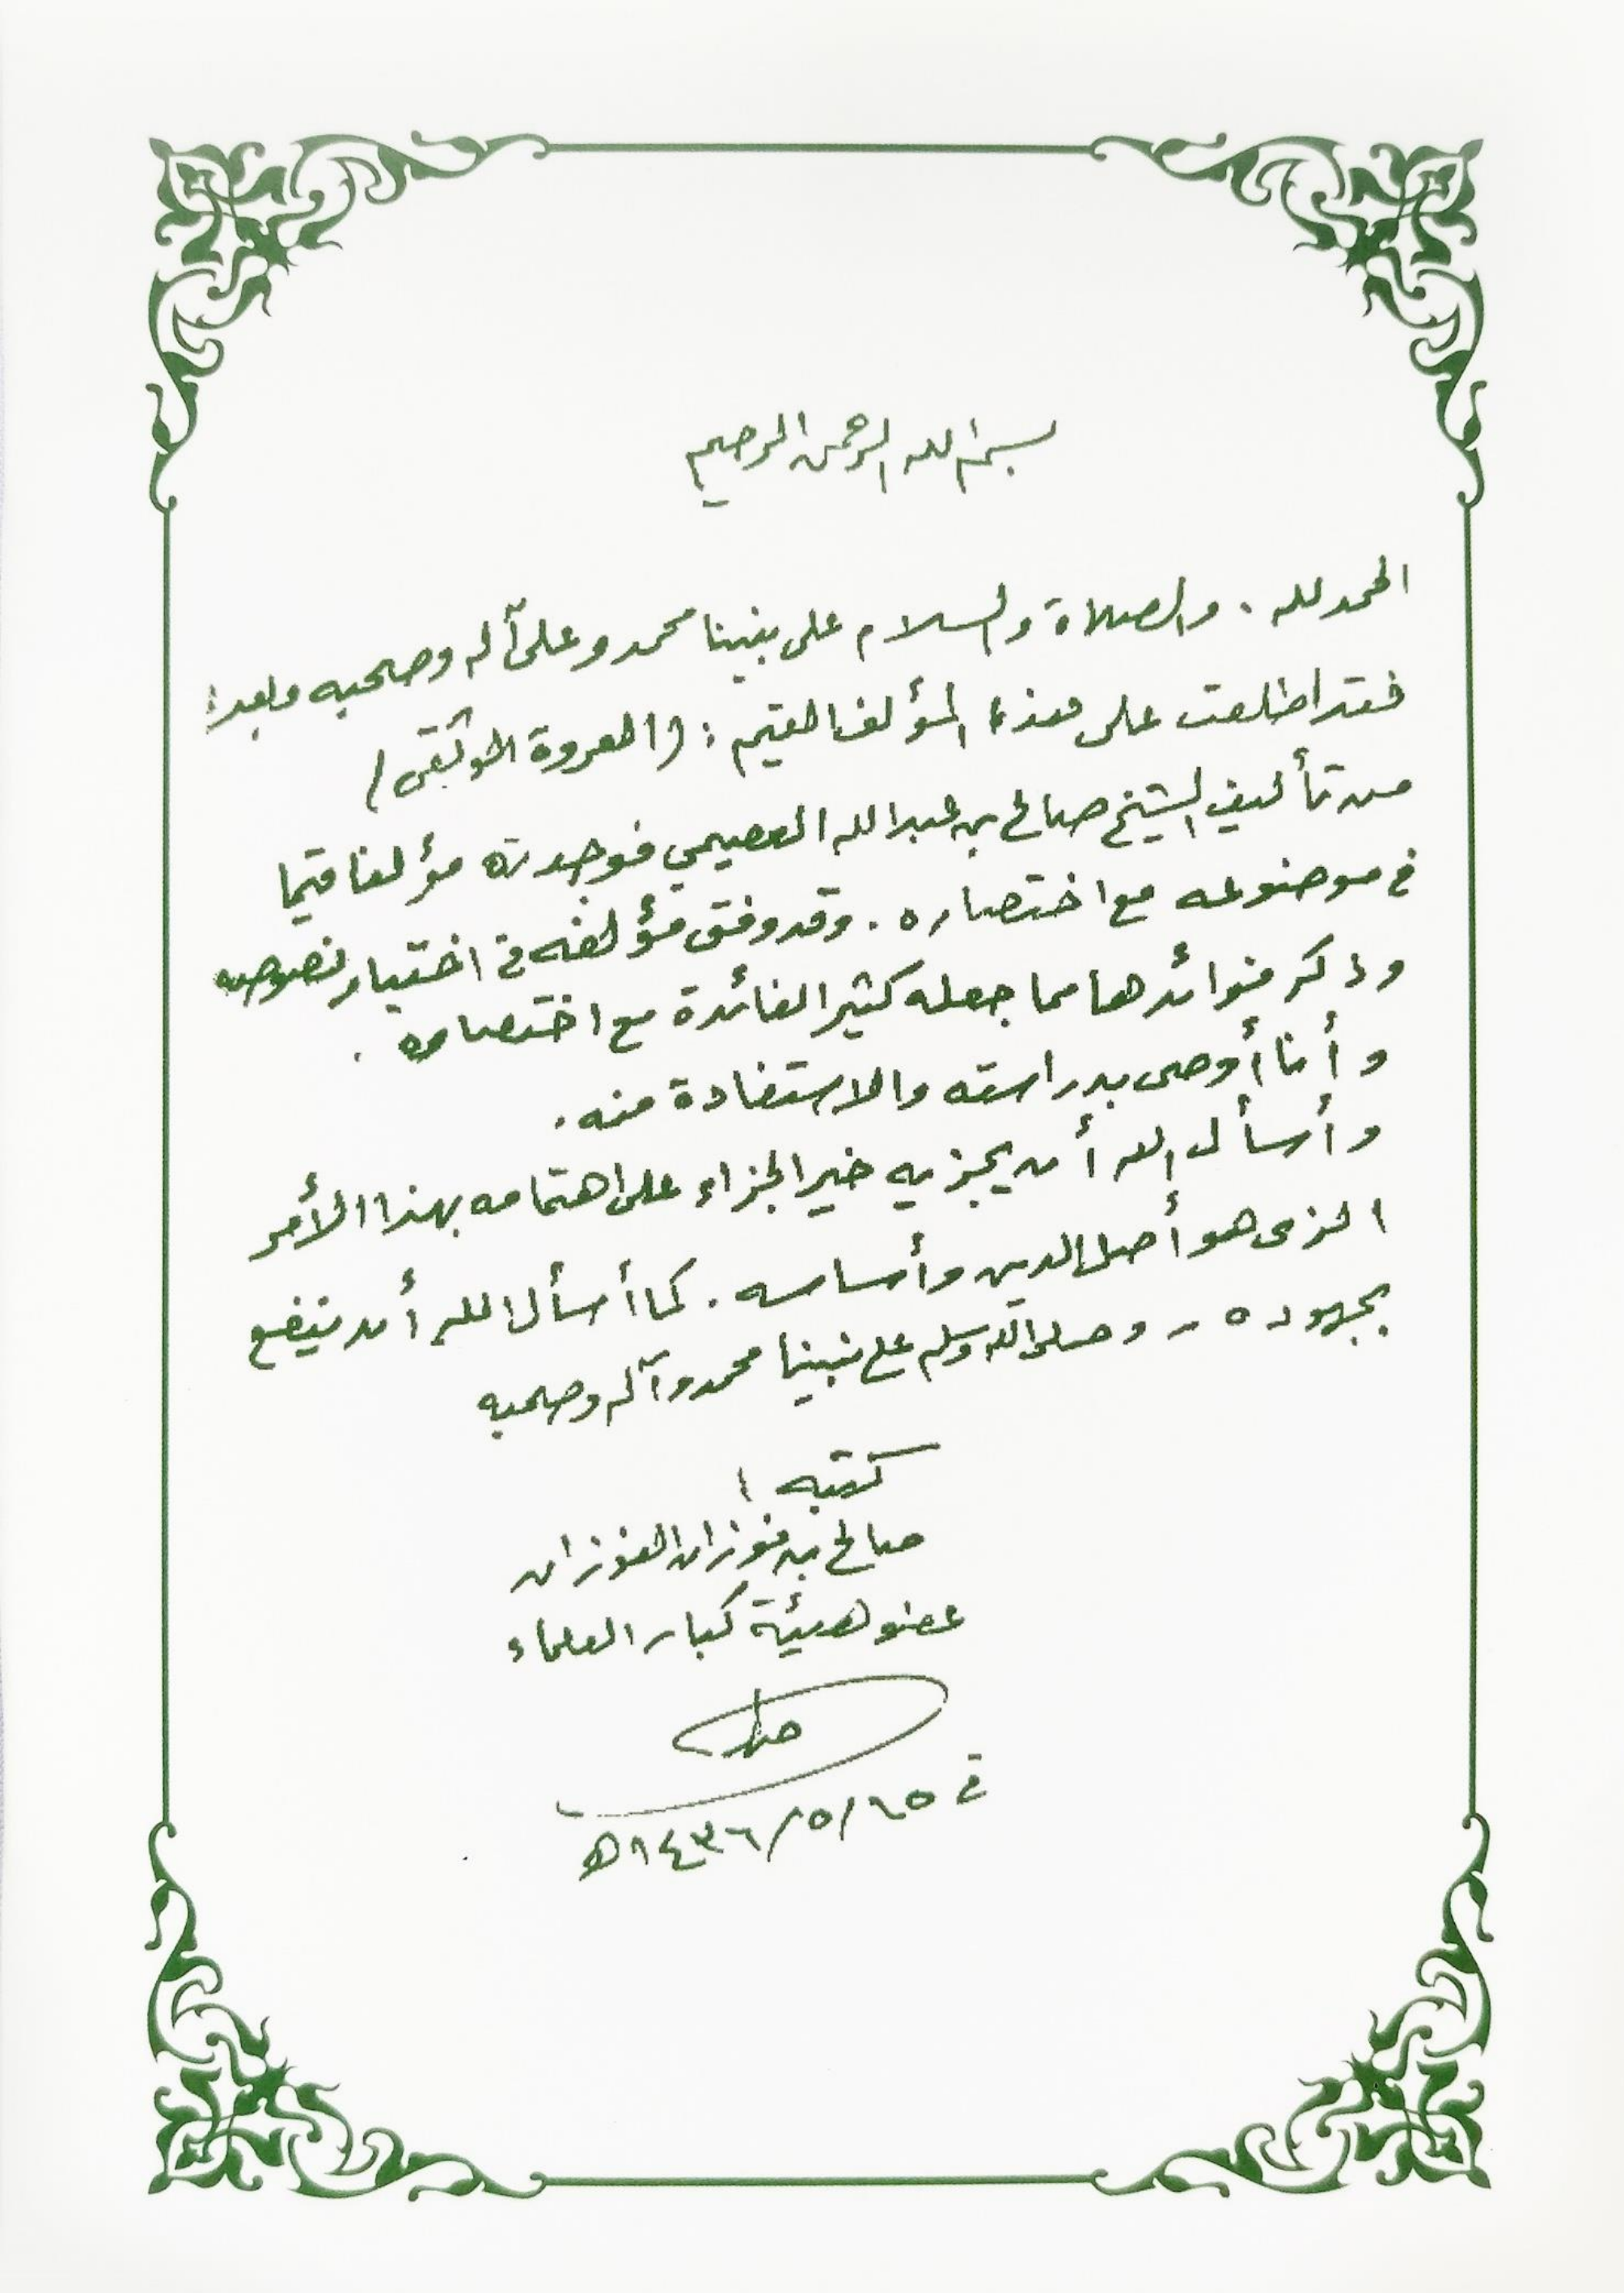 بسم الله الرحمن الرحيم
الحمد لله . والصلاة والسلام على نبينا محمد وعلى آله وصحبه وبعد :
فقد اطلعت على هذا المؤلف القيم : ( العروة الوثقى )
من تأليف الشيخ صالح بن عبدالله العصيمي فوجدته مؤلفا قيما
في موضوعه مع اختصاره . وقد وفق مؤلفه في اختيار نصوصه
وذكر فوائدها مما جعله كثير الفائدة مع اختصاره .
وأنا أوصي بدراسته والاستفادة منه .
وأسأل الله أن يجزيه خير الجزاء على اهتمامه بهذا الأمر
الذي هو أصل الدين وأساسه . كما أسأل الله أن ينفع
بجهوده - وصلى الله وسلم على نبينا محمد وآله وصحبه
كتبه :
صالح بن فوزان الفوزان
عضو هيئة كبار العلماء
في ٢٥/٥/١٤٣٦هـ